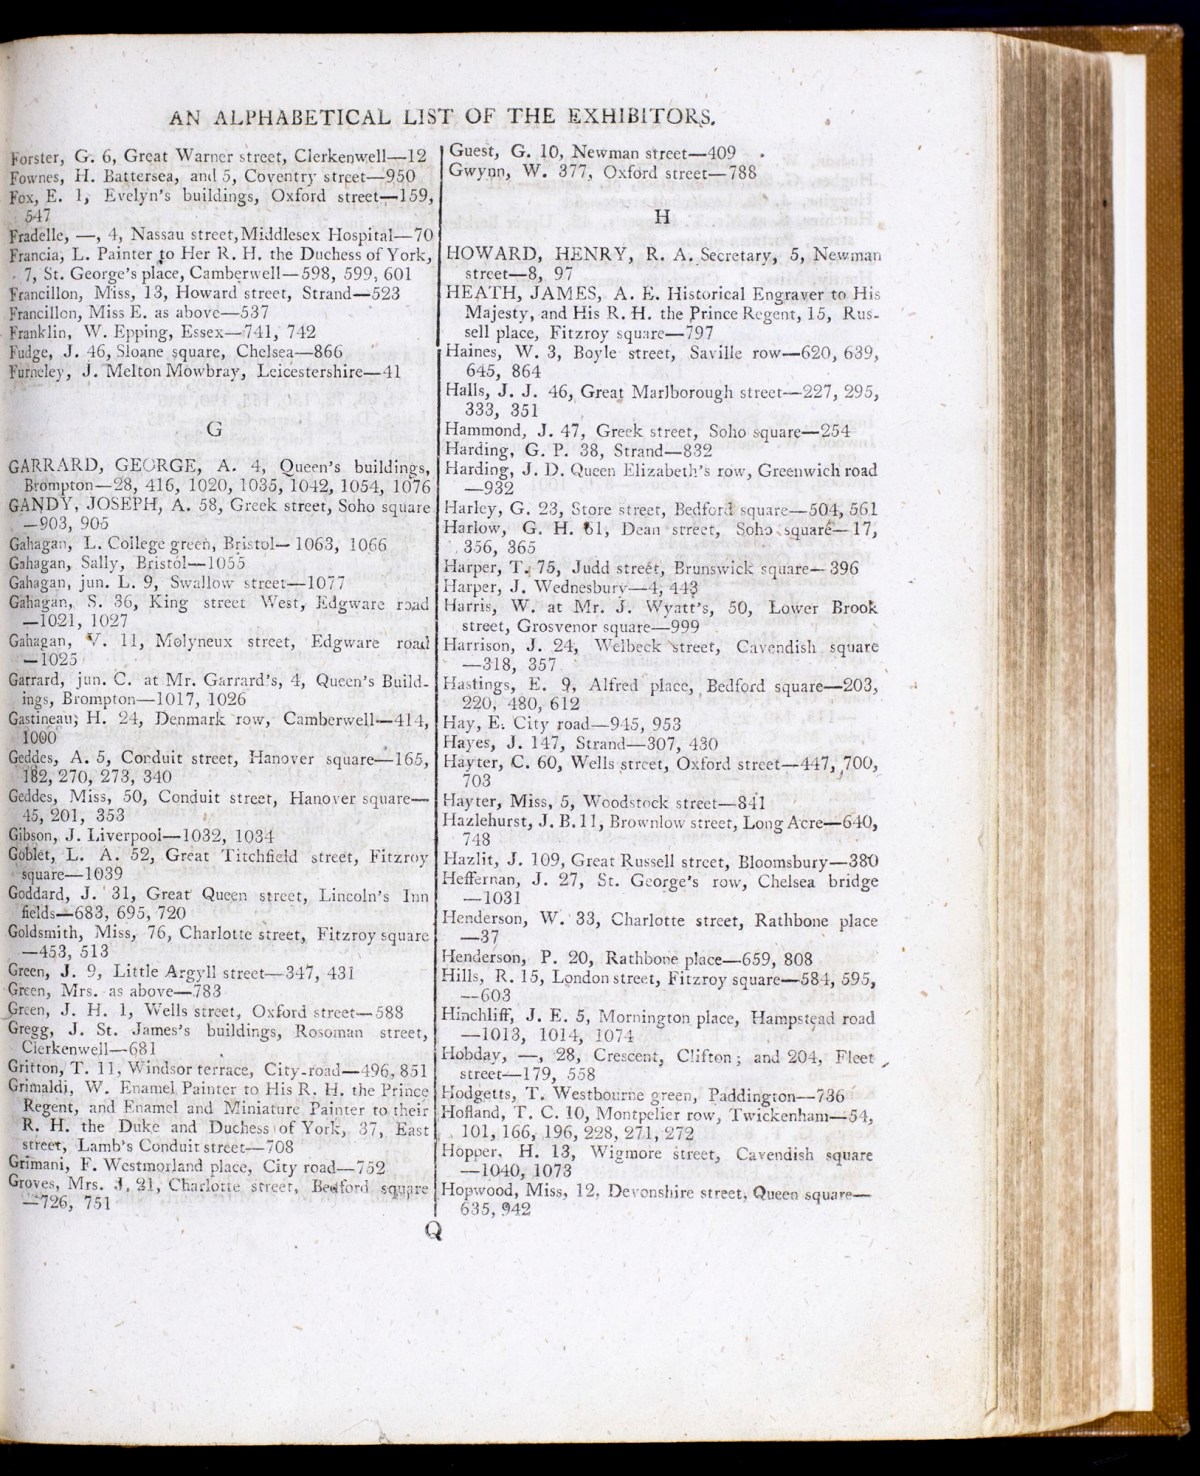 AN ALPHABETICAL LIST OF THE EXHIBITORS.
Forster, G. 6, Great Warner street, Clerkenwell—12
Fownes, H. Battersea, and 5, Coventry street—950
Fox, E. 1, Evelyn's buildings, Oxford street—159,
547
Fradelle, —, 4, Nassau street, Middlesex Hospital—70
Francia, L. Painter to Her R. H. the Duchess of York,
7, St. George's place, Camberwell—598, 599, 601
Francillon, Miss, 13, Howard street, Strand—523
Francillon, Miss E. as above—537
Franklin, W. Epping, Essex—741, 742
Fudge, J. 46, Sloane square, Chelsea—866
Furneley, J. Melton Mowbray, Leicestershire—41
G
GARRARD, GEORGE, A. 4, Queen's buildings,
Brompton—28, 416, 1020, 1035, 1042, 1054, 1076
GANDY, JOSEPH, A. 58, Greek street, Soho square
—903, 905
Gahagan, L. College green, Bristol—1063, 1066
Gahagan, Sally, Bristol—1055
Gahagan, jun. L. 9, Swallow street—1077
Gahagan, S. 36, King street West, Edgware road
—1021, 1027
Gahagan, V. 11, Molyneux street, Edgware road
—1025
Garrard, jun. C. at Mr. Garrard's, 4, Queen's Build-
ings, Brompton—1017, 1026
Gastineau, H. 24, Denmark row, Camberwell—414,
1000
Geddes, A. 5, Conduit street, Hanover square—165,
182, 270, 273, 340
Geddes, Miss, 50, Conduit street, Hanover square—
45, 201, 353
Gibson, J. Liverpool—1032, 1034
Goblet, L. A. 52, Great Titchfield street, Fitzroy
square—1039
Goddard, J. 31, Great Queen street, Lincoln's Inn
fields—683, 695, 720
Goldsmith, Miss, 76, Charlotte street, Fitzroy square
—453, 513
Green, J. 9, Little Argyll street—347, 431
Green, Mrs. as above—783
Green, J. H. 1, Wells street, Oxford street—588
Gregg, J. St. James's buildings, Rosoman street,
Clerkenwell—681
Gritton, T. 11, Windsor terrace, City-road—496, 851
Grimaldi, W. Enamel Painter to His R. H. the Prince
Regent, and Enamel and Miniature Painter to their
R. H. the Duke and Duchess of York, 37, East
street, Lamb's Conduit street—708
Grimani, F. Westmorland place, City road—752
Groves, Mrs. J. 21, Charlotte street, Bedford square
—726, 751
Guest, G. 10, Newman street—409
Gwynn, W. 377, Oxford street—788
H
HOWARD, HENRY, R. A. Secretary, 5, Newman
street—8, 97
HEATH, JAMES, A. E. Historical Engraver to His
Majesty, and His R. H. the Prince Regent, 15, Rus-
sell place, Fitzroy square—797
Haines, W. 3, Boyle street, Saville row—620, 639,
645, 864
Halls, J. J. 46, Great Marlborough street—227, 295,
333, 351
Hammond, J. 47, Greek street, Soho square—254
Harding, G. P. 38, Strand—832
Harding, J. D. Queen Elizabeth's row, Greenwich road
—932
Harley, G. 23, Store street, Bedford square—504, 561
Harlow, G. H. 61, Dean street, Soho square—17,
356, 365
Harper, T. 75, Judd street, Brunswick square—396
Harper, J. Wednesbury—4, 443
Harris, W. at Mr. J. Wyatt's, 50, Lower Brook
street, Grosvenor square—999
Harrison, J. 24, Welbeck street, Cavendish square
—318, 357
Hastings, E. 9, Alfred place, Bedford square—203,
220, 480, 612
Hay, E. City road—945, 953
Hayes, J. 147, Strand—307, 430
Hayter, C. 60, Wells street, Oxford street—447, 700,
703
Hayter, Miss, 5, Woodstock street—841
Hazlehurst, J. B. 11, Brownlow street, Long Acre—640,
748
Hazlit, J. 109, Great Russell street, Bloomsbury—380
Heffernan, J. 27, St. George's row, Chelsea bridge
—1031
Henderson, W. 33, Charlotte street, Rathbone place
—37
Henderson, P. 20, Rathbone place—659, 808
Hills, R. 15, London street, Fitzroy square—584, 595,
—603
Hinchliff, J. E. 5, Mornington place, Hampstead road
—1013, 1014, 1074
Hobday, —, 28, Crescent, Clifton; and 204, Fleet
street—179, 558
Hodgetts, T. Westbourne green, Paddington—736
Hofland, T. C. 10, Montpelier row, Twickenham—54,
101, 166, 196, 228, 271, 272
Hopper, H. 13, Wigmore street, Cavendish square
—1040, 1073
Hopwood, Miss, 12, Devonshire street, Queen square—
635, 942
Q